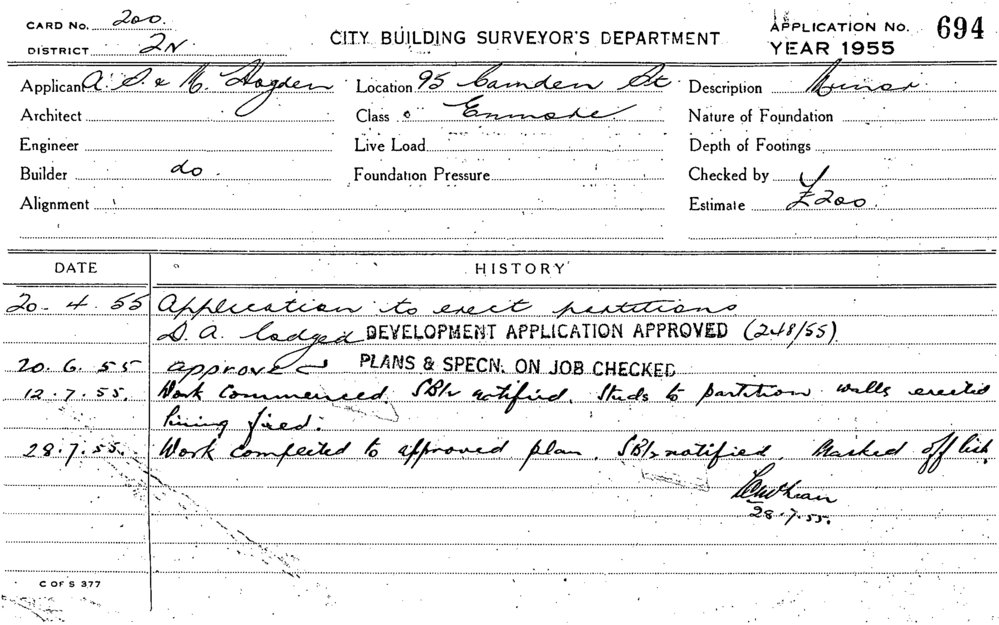 CARD No. 200.
DISTRICT 2N
CITY BUILDING SURVEYOR'S DEPARTMENT
APPLICATION No. 694
YEAR 1955
Applicant A. S. & M. Hogden Location 95 Camden St Description Minor
Architect Class Enmore Nature of Foundation
Engineer Live Load Depth of Footings
Builder do. Foundation Pressure Checked by
Alignment Estimate £200.
DATE HISTORY
20. 4. 55 Application to erect partitions
D. A. lodged DEVELOPMENT APPLICATION APPROVED (248/55)
20. 6. 55 approved PLANS & SPECN. ON JOB CHECKED
12. 7. 55. Work Commenced. notified. Studs to partition walls erected
lining fixed.
28. 7. 55. Work completed to approved plan. notified. Marked off list.
28.7.55.
C OF S 377